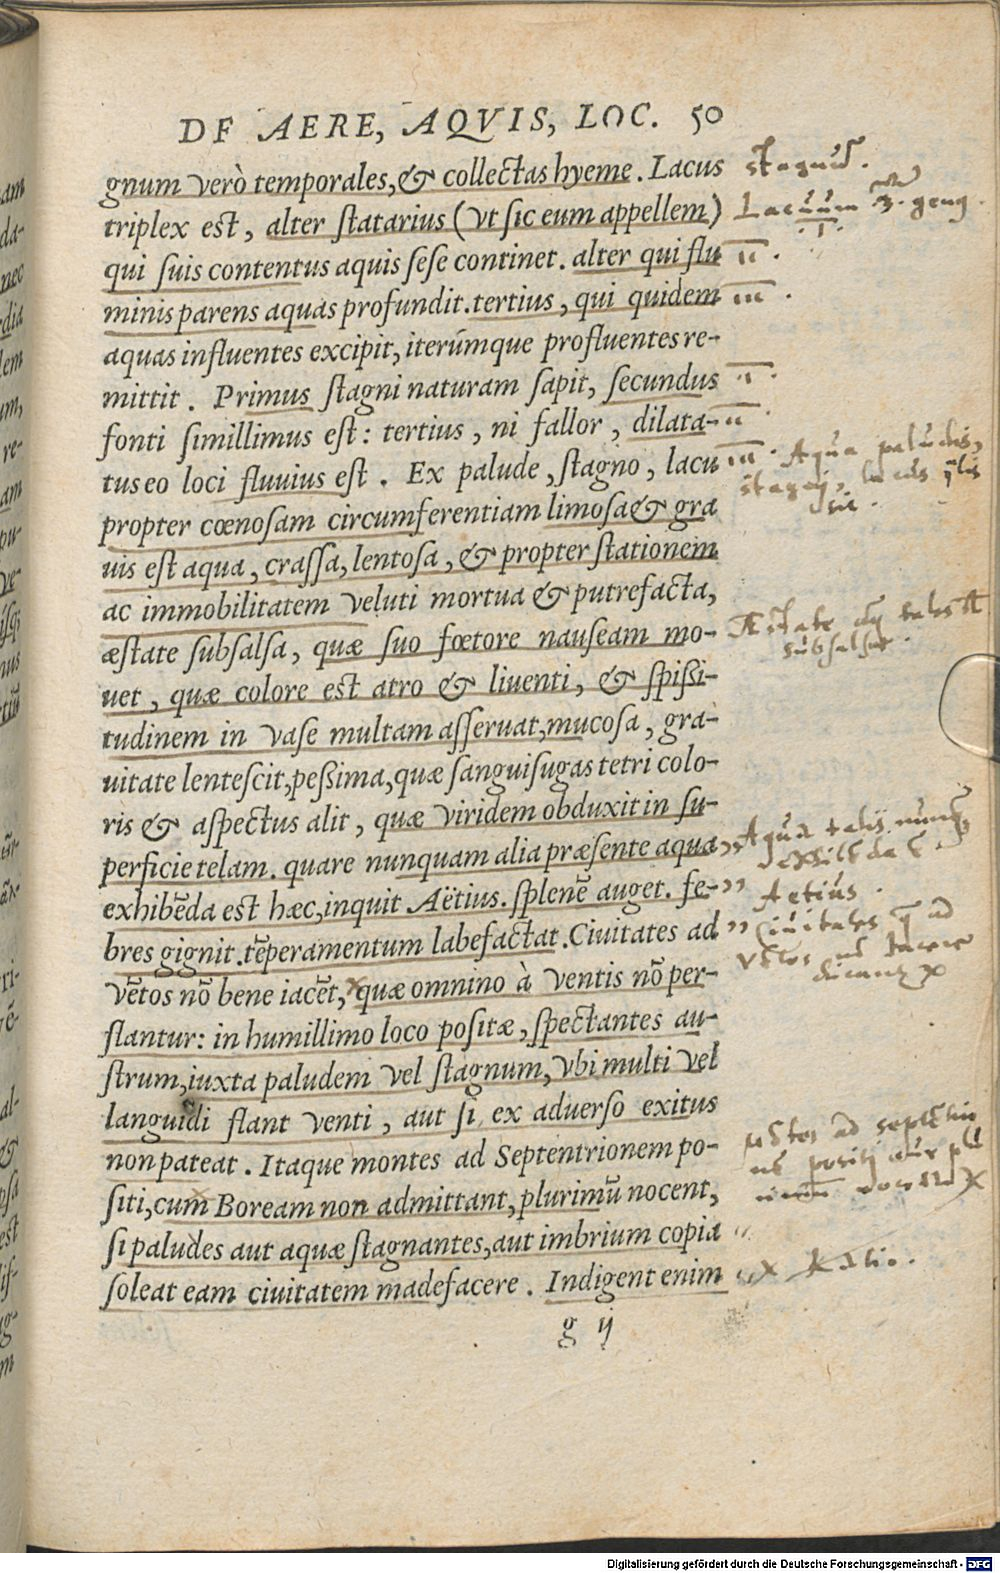 DE AERE, AQVIS, LOC. 50
gnum verò temporales, & collectas hyeme. Lacus
triplex est, alter statarius (vt sic eum appellem)
qui suis contentus aquis sese continet. alter qui flu
minis parens aquas profundit. tertius, qui quidem
aquas influentes excipit, iterúmque profluentes re-
mittit. Primus stagni naturam sapit, secundus
fonti simillimus est: tertius, ni fallor, dilata-
tus eo loci fluuius est. Ex palude, stagno, lacu
propter cœnosam circumferentiam limosa & gra
uis est aqua, crassa, lentosa, & propter stationem
ac immobilitatem veluti mortua & putrefacta,
æstate subsalsa, quæ suo fœtore nauseam mo-
uet, quæ colore est atro & liuenti, & spißi-
tudinem in vase multam asseruat, mucosa, gra-
uitate lentescit, peßima, quæ sanguisugas tetri colo-
ris & aspectus alit, quæ viridem obduxit in su-
perficie telam. quare nunquam alia præsente aqua
exhibēda est hæc, inquit Aëtius. splenē auget. fe-
bres gignit. tēperamentum labefactat. Ciuitates ad
vētos nō bene iacēt, quæ omnino à ventis nō per-
flantur: in humillimo loco positæ, spectantes au-
strum, iuxta paludem vel stagnum, vbi multi vel
languidi flant venti, aut si ex aduerso exitus
non pateat. Itaque montes ad Septentrionem po-
siti, cum Boream non admittant, plurimū nocent,
si paludes aut aquæ stagnantes, aut imbrium copia
soleat eam ciuitatem madefacere. Indigent enim
g ij
Lacuum 3. 
I
II.
III.
I.
II.
III. Aqua paludis,
sic.
Æstate
subsalsæ.
Aqua talis
Aetius.
Ciuitates ad
ad septētrio
Ratio.
Digitalisierung gefördert durch die Deutsche Forschungsgemeinschaft - DFG